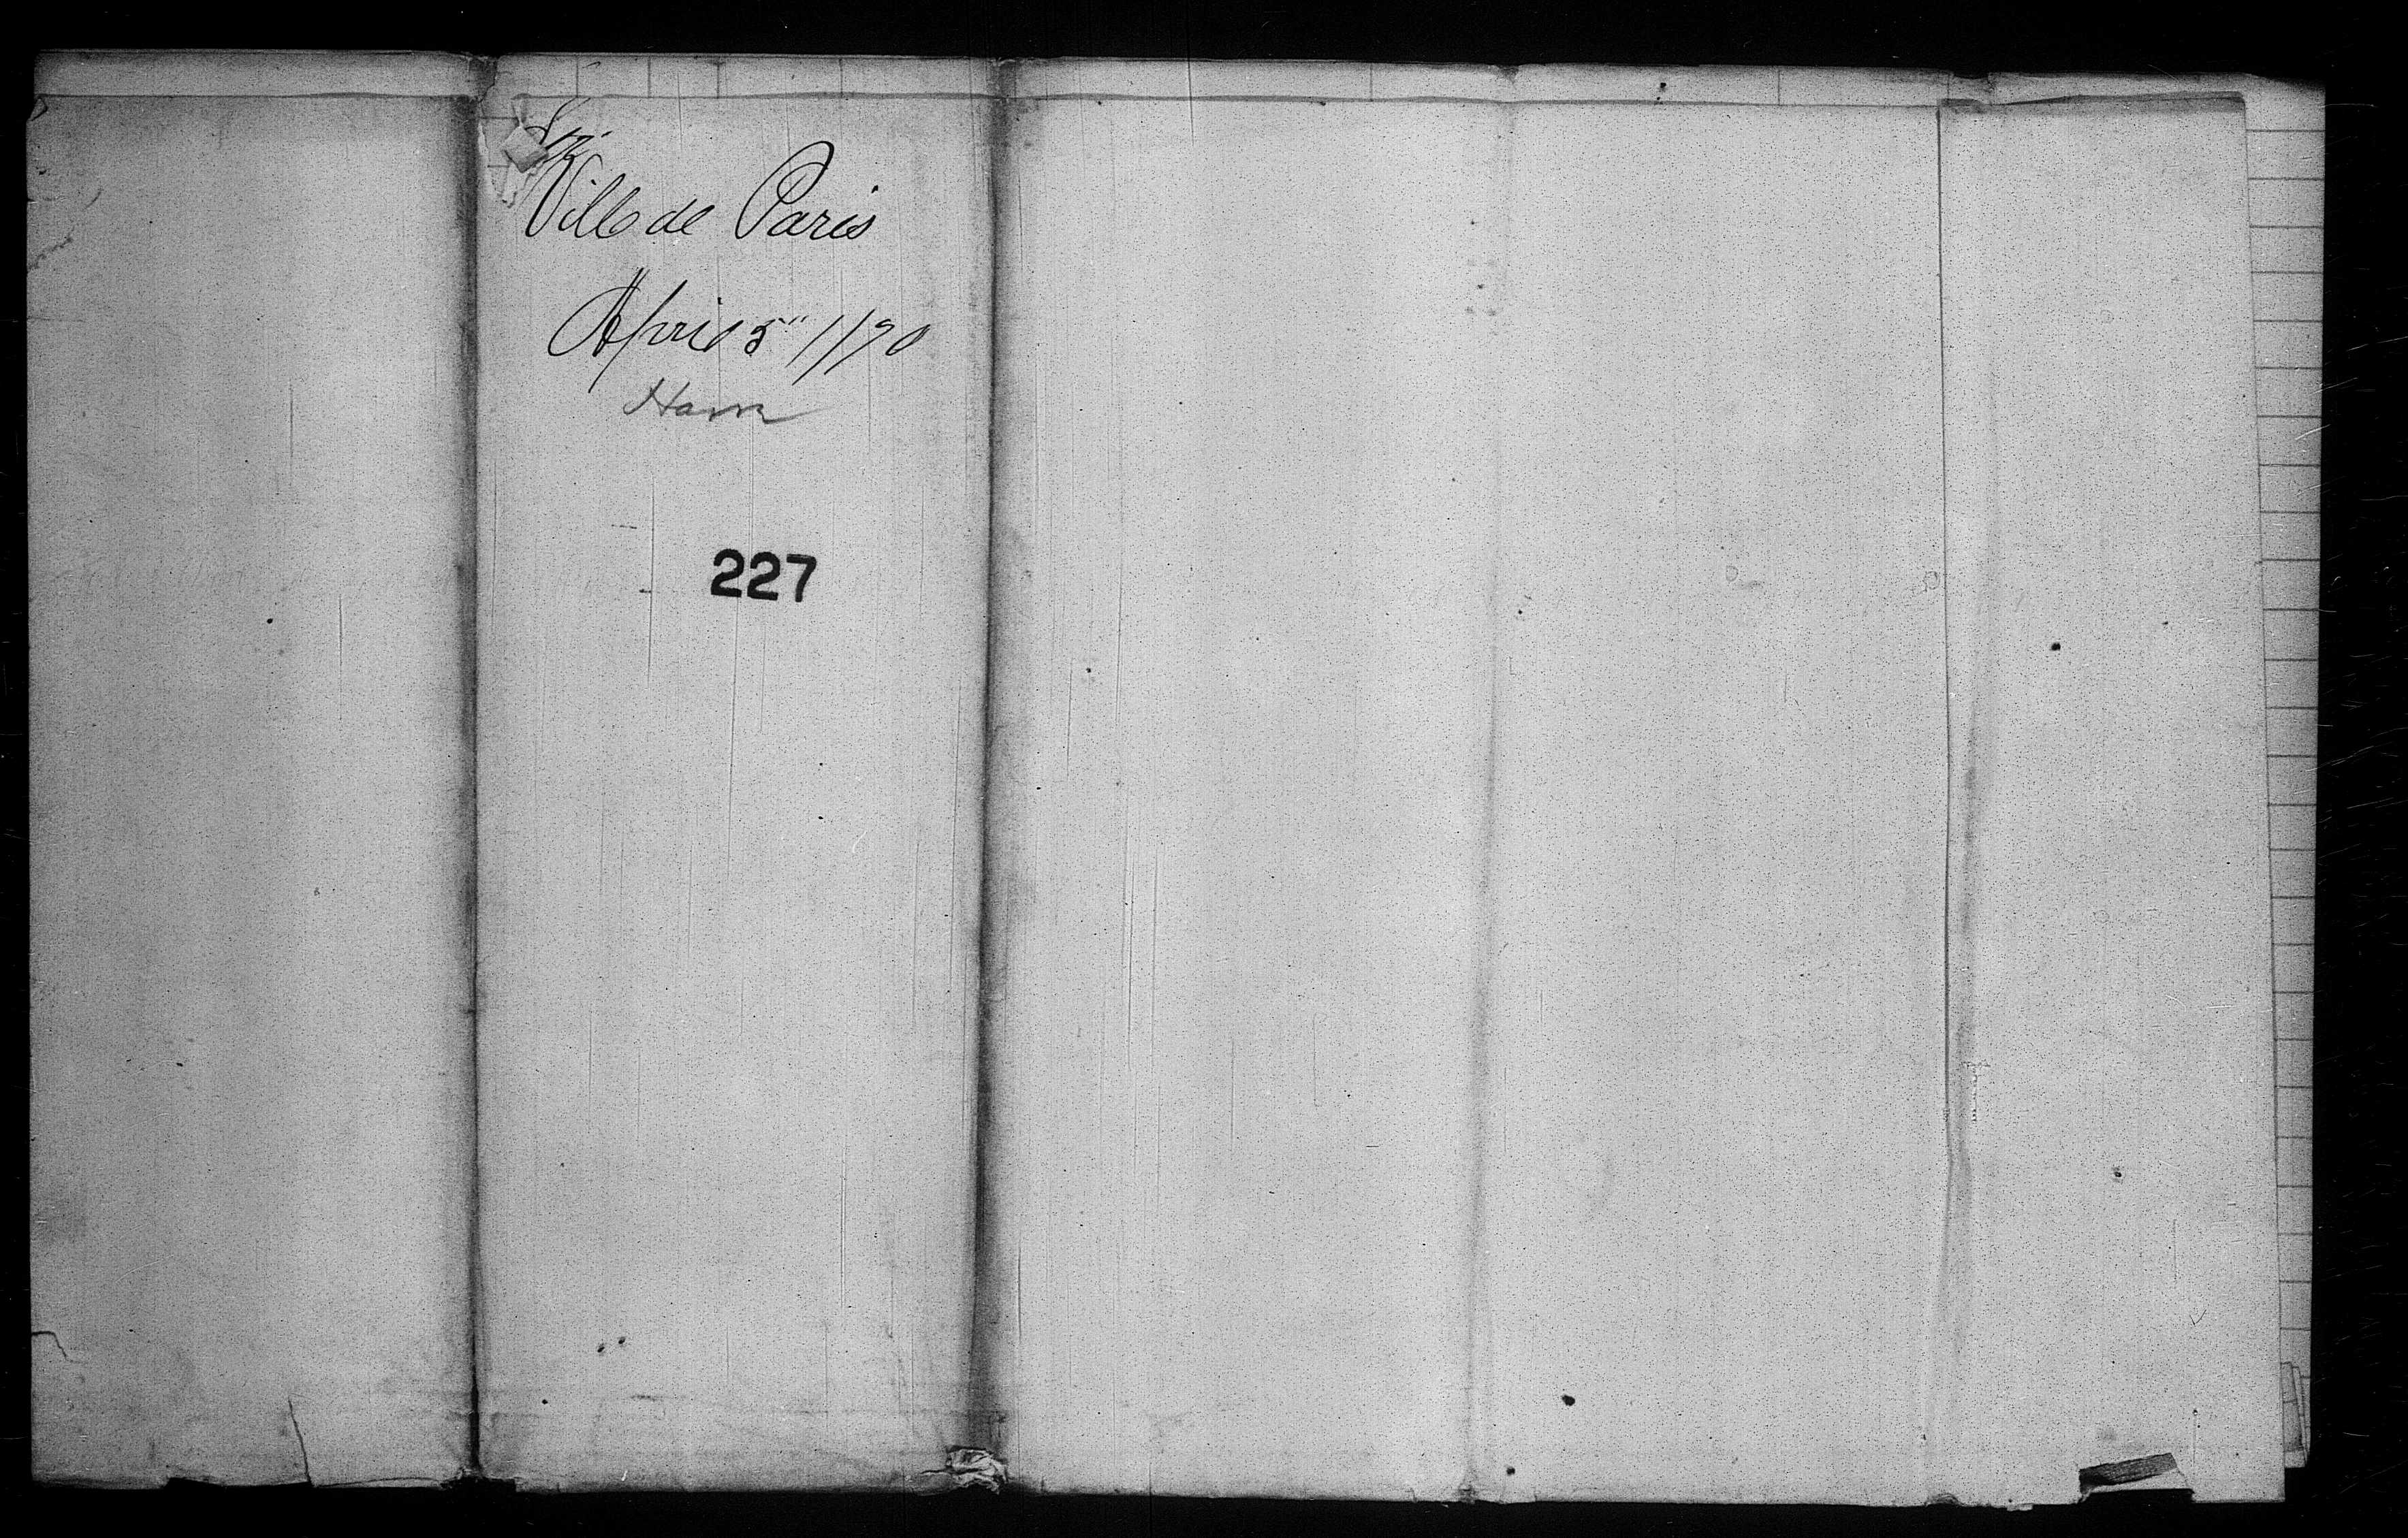 Ville de Paris
April 5" 1190
Havre
227